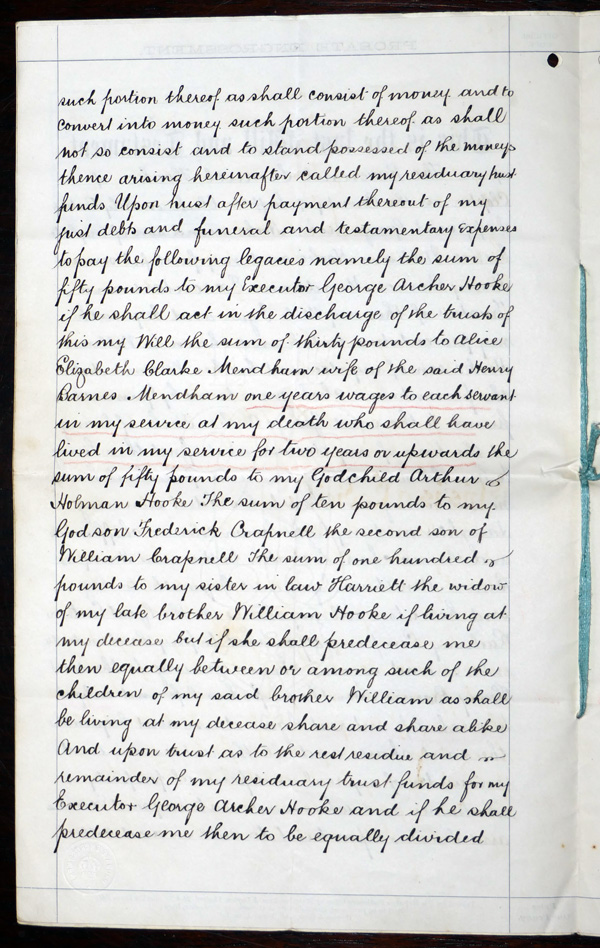 such portion thereof as shall consist of money and to
convert into money such portion thereof as shall
not so consist and to stand possessed of the moneys
thence arising hereinafter called my residuary trust
funds Upon trust after payment thereout of my
just debts and funeral and testamentary Expenses
to pay the following legacies namely the sum of
fifty pounds to my Executor George Archer Hooke
if he shall act in the discharge of the trusts of
this my Will the sum of thirty pounds to Alice
Elizabeth Clarke Mendham wife of the said Henry
Barnes Mendham one years wages to each servant
in my service at my death who shall have
lived in my service for two years or upwards the
sum of fifty pounds to my Godchild Arthur
Holman Hooke The sum of ten pounds to my
Godson Frederick Crapnell the second son of
William Crapnell The sum of one hundred
pounds to my sister in law Harriett the widow
of my late brother William Hooke if living at
my decease but if she shall predecease me
then equally between or among such of the
children of my said brother William as shall
be living at my decease share and share alike
And upon trust as to the rest residue and
remainder of my residuary trust funds for my
Executor George Archer Hooke and if he shall
predecease me then to be equally divided